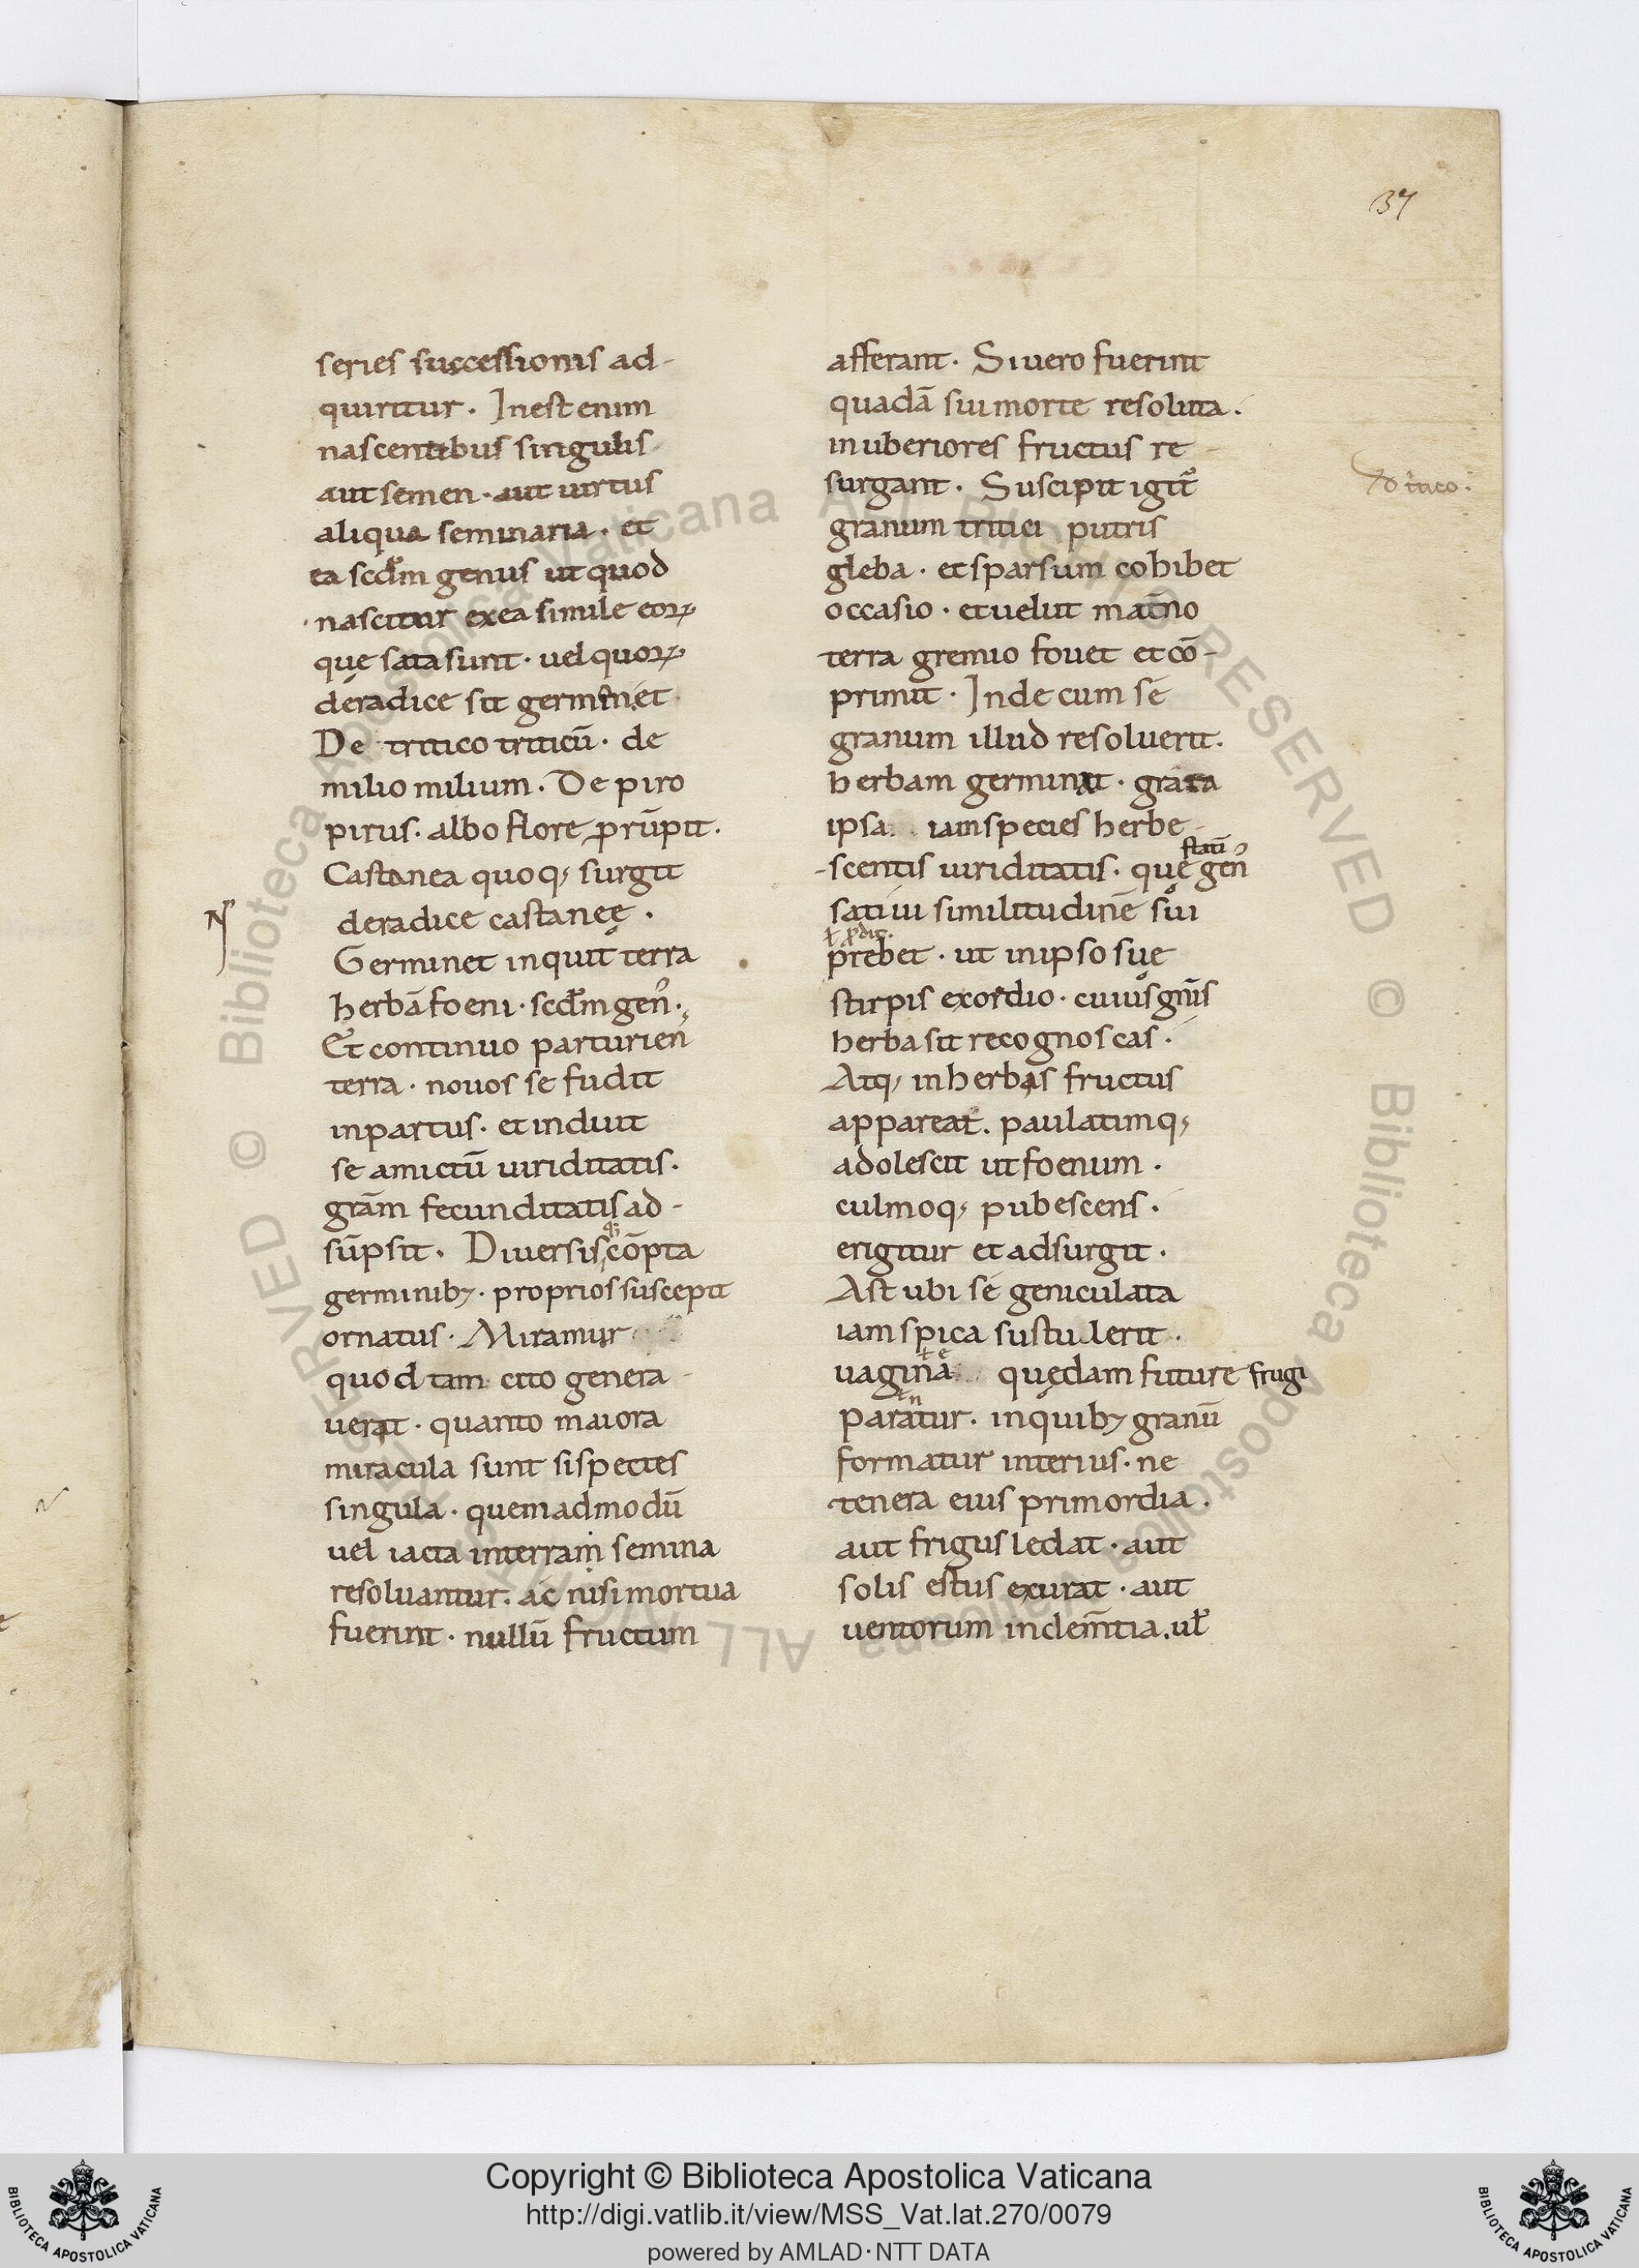 37
series successionis ad-
quiritur. Inest enim
nascentibus singulis
aut semen. aut uirtus
aliqua seminaria. et
ea scd̄m genus ut quod
nascitur ex ea simile eoꝝ
que̜ sata sunt. uel quoꝝ
de radice sit germinet
De tritico triticū. de
milio milium. De piro
pirus. albo flore prūpit.
Castanea quoq; surgit
de radice castanee̜.
Germinet inquit terra
herbā foeni. scd̄m gen̄.
Et continuo parturien
terra. nouos se fudit
in partus. et induit
se amictū uiriditatis.
grām fecunditatis ad-
sūpsit. Diuersis cōpta
germinib;. proprios suscepit
ornatus. Miramur
quod tam cito genera-
uerat. quanto maiora
miracula sunt si spectes
singula. quemadmodū
uel iacta in terram semina
resoluantur. ac nisi mortua
fuerint. nullū fructum
afferant. Si uero fuerint
quadā sui morte resoluta.
in uberiores fructus re-
surgant. Suscipit igit̄
granum tritici putris
gleba. et sparsum cohibet
occasio. et uelut mat̄no
terra gremio fouet et cō-
primit. Inde cum se
granum illud resoluerit.
herbam germinat. grata
ipsa iam species herbe-
statī
scentis uiriditatis. que̜ gen̄
satiui similitudinē sui
prebet. ut in ipso sue̜
stirpis exordio. cuius gn̄is
herba sit recognoscas.
Atq; in herbas fructus
appareat. paulatimq;
adolescit ut foenum.
culmoq; pubescens.
erigitur et adsurgit.
Ast ubi se geniculata
iam spica sustulerit.
uagina que̜dam future frugi
paratur. in quib; granū
formatur interius. ne
tenera eius primordia.
aut frigus ledat. aut
solis estus exurat. aut
uentorum inclem̄tia. ul̄
Copyright © Biblioteca Apostolica Vaticana
http://digi.vatlib.it/view/MSS_Vat.lat.270/0079
powered by AMLAD·NTT DATA
BIBLIOTECA APOSTOLICA VATICANA
BIBLIOTECA APOSTOLICA VATICANA